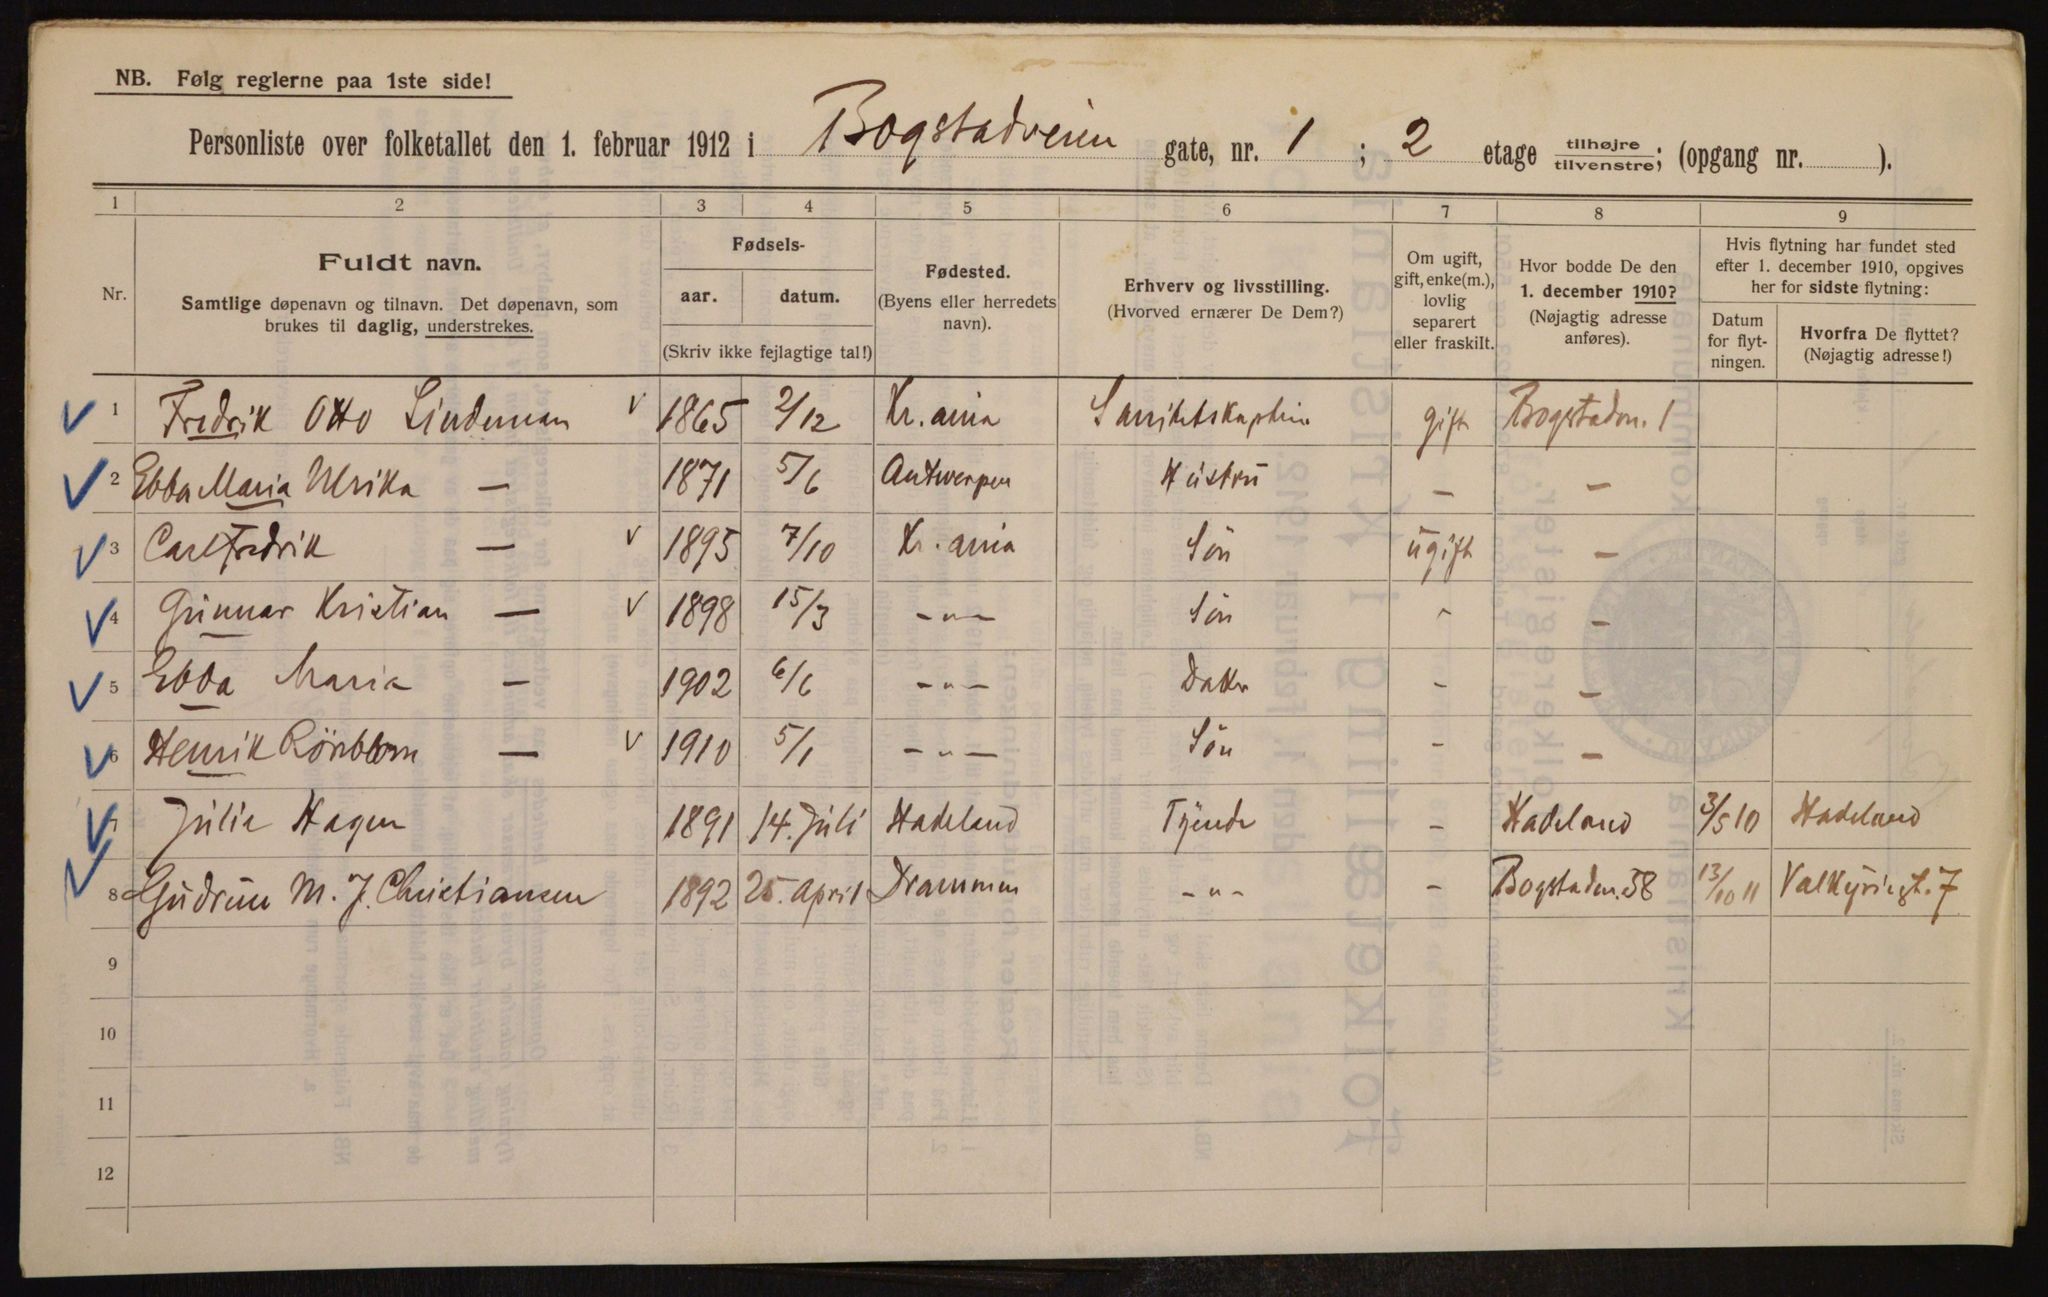 NB. Følg reglerne paa 1ste side!
Personliste over folketallet den 1. februar 1912 i Bogstadveien gate, nr. 1 ; 2 etage tilhøjre tilvenstre; (opgang nr. ).
1 2 3 4 5 6 7 8 9
Nr.
Fuldt navn.
Samtlige døpenavn og tilnavn. Det døpenavn, som
brukes til daglig, understrekes.
Fødsels-
aar. datum.
(Skriv ikke fejlagtige tal!)
Fødested.
(Byens eller herredets
navn).
Erhverv og livsstilling.
(Hvorved ernærer De Dem?)
Om ugift,
gift, enke(m.),
lovlig
separert
eller fraskilt.
Hvor bodde De den
1. december 1910?
(Nøjagtig adresse
anføres).
Hvis flytning har fundet sted
efter 1. december 1910, opgives
her for sidste flytning:
Datum
for flyt-
ningen.
Hvorfra De flyttet?
(Nøjagtig adresse!)
1 Fredrik Otto Lindeman 1865 2/12 Kr.ania Sanitetskaptein gift Bogstadv. 1
2 Ebba Maria Ulrika — 1871 5/6 Antwerpen Hustru — —
3 Carl Fredrik — 1895 7/10 Kr.ania Sön ugift —
4 Gunnar Kristian — 1898 15/3 —"— Sön - —
5 Ebba Maria — 1902 6/6 —"— Datter - —
6 Henrik Rönblom — 1910 5/1 —"— Sön - —
7 Julie Hagen 1891 14. Juli Hadeland Tjende - Hadeland 3/5 10 Hadeland
8 Gudrun M. J. Christiansen 1892 25. april Drammen —"— - Bogstadv. 58 13/10 11 Valkyriegt. 7
9
10
11
12